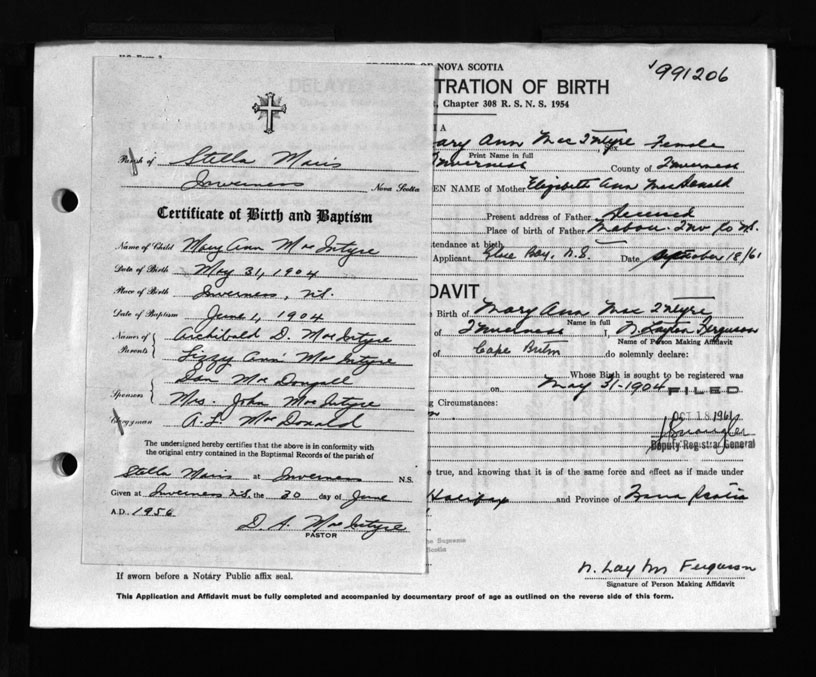 PROVINCE OF NOVA SCOTIA
991206
DELAYED REGISTRATION OF BIRTH
Chapter 308 R. S. N. S. 1954
Parish of Stella Maris
Inverness Nova Scotia
Certificate of Birth and Baptism
Name of Child Mary Ann MacIntyre
Date of Birth May 31, 1904
Place of Birth Inverness, N.S.
Date of Baptism June 1, 1904
Names of Parents Archibald D. MacIntyre
Lizzy Ann MacIntyre
Sponsors Dan MacDougall
Mrs. John MacIntyre
Clergyman A. L. MacDonald
The undersigned hereby certifies that the above is in conformity with
the original entry contained in the Baptismal Records of the parish of
Stella Maris at Inverness N.S.
Given at Inverness N.S. the 30 day of June
A.D. 1956
D. A. MacIntyre
PASTOR
ary Ann MacIntyre Female
Print Name in full
Inverness County of Inverness
EN NAME of Mother Elizabeth Ann MacDonald
Present address of Father Deceased
Place of birth of Father Mabou Inv Co N.S.
ttendance at birth
Applicant Glace Bay, N.S. Date September 18/61
AFFIDAVIT
Birth of Mary Ann MacIntyre
Name in full
of Inverness I, Ferguson
Name of Person Making Affidavit
of Cape Breton do solemnly declare:
Whose Birth is sought to be registered was
on May 31-1904
FILED
ng Circumstances:
OCT 18 1961
Deputy Registrar General
e true, and knowing that it is of the same force and effect as if made under
Halifax and Province of Nova Scotia
he Supreme
Scotia
Ferguson
Signature of Person Making Affidavit
If sworn before a Notary Public affix seal.
This Application and Affidavit must be fully completed and accompanied by documentary proof of age as outlined on the reverse side of this form.